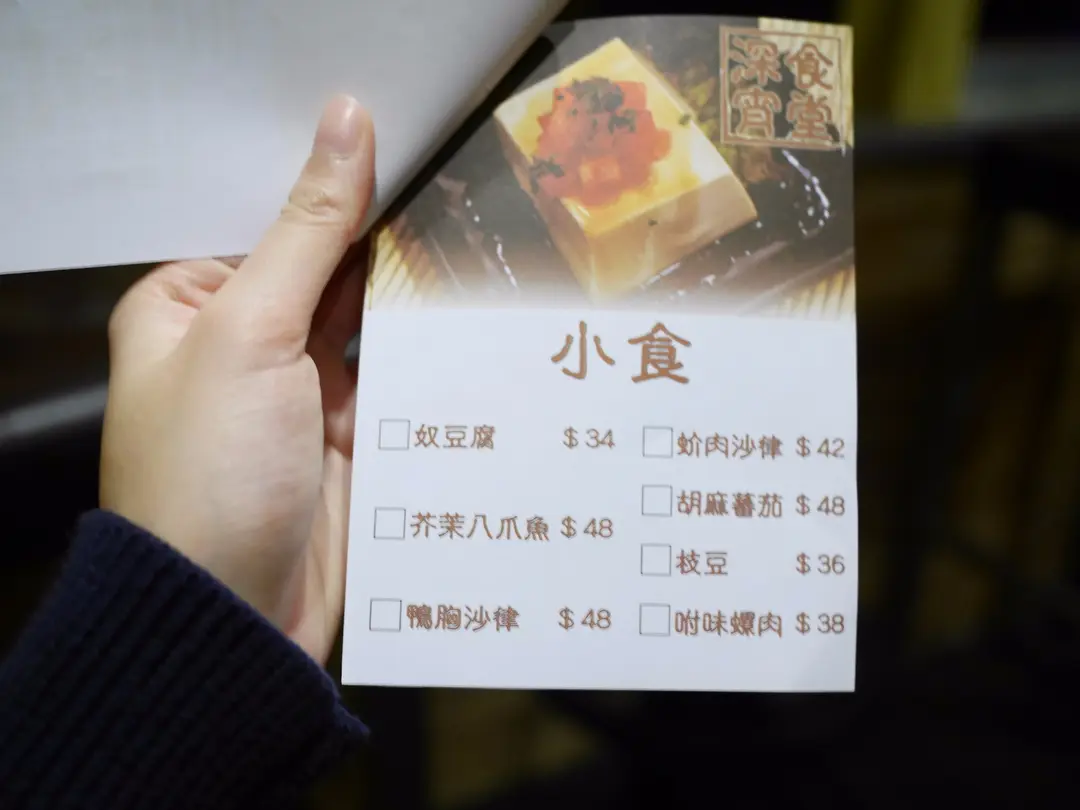 深宵
食堂
小食
奴豆腐 $34
芥茉八爪魚 $48
鴨胸沙律 $48
蚧肉沙律 $42
胡麻蕃茄 $48
枝豆 $36
咐味螺肉 $38